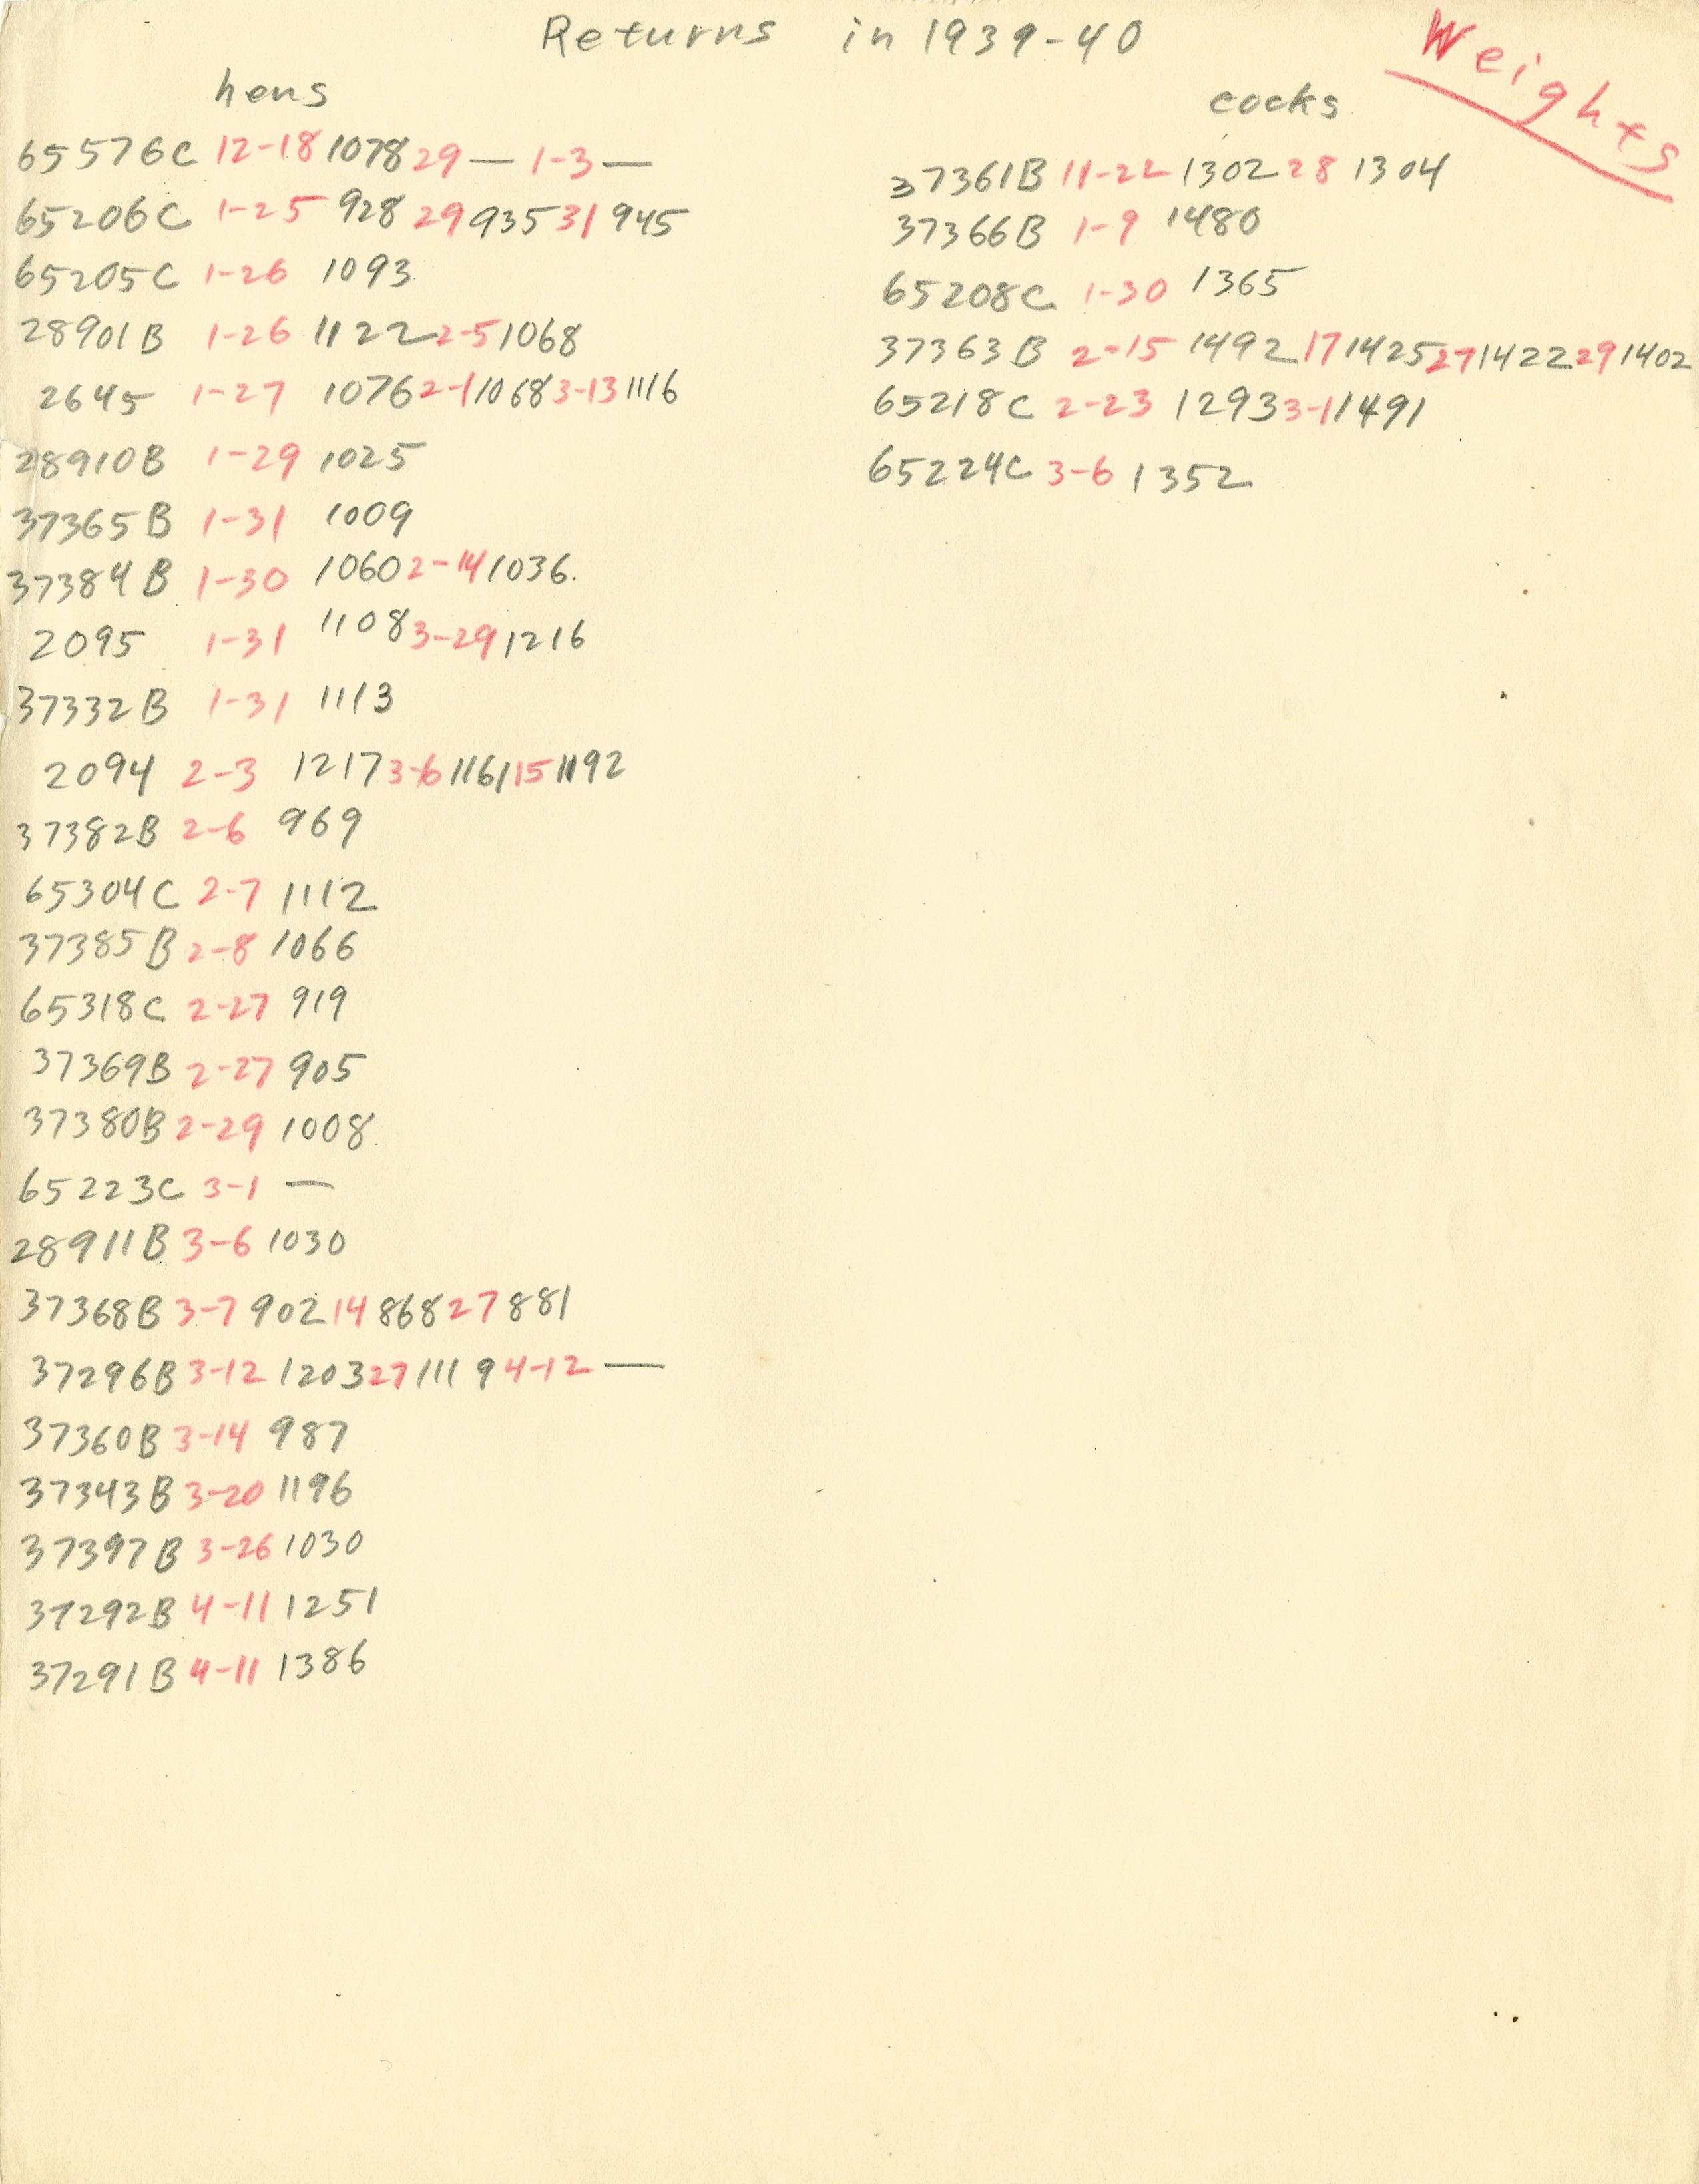 Returns in 1939-40
Weights
hens
65576C 12-18 1078 29 — 1-3 —
65206C 1-25 928 29 935 31 945
65205C 1-26 1093
28901B 1-26 1122 2-5 1068
2645 1-27 1076 2-1 1068 3-13 1116
28910B 1-29 1025
37365B 1-31 1009
37384B 1-30 1060 2-14 1036.
2095 1-31 1108 3-29 1216
37332B 1-31 1113
2094 2-3 1217 3-6 1161 15 1192
37382B 2-6 969
65304C 2-7 1112
37385B 2-8 1066
65318C 2-27 919
37369B 2-27 905
37380B 2-29 1008
65223C 3-1 —
28911B 3-6 1030
37368B 3-7 902 14 868 27 881
37296B 3-12 1203 27 1119 4-12 —
37360B 3-14 987
37343B 3-20 1196
37397B 3-26 1030
37292B 4-11 1251
37291B 4-11 1386
cocks
37361B 11-22 1302 28 1304
37366B 1-9 1480
65208C 1-30 1365
37363B 2-15 1492 17 1425 27 1422 29 1402
65218C 2-23 1293 3-1 1491
65224C 3-6 1352